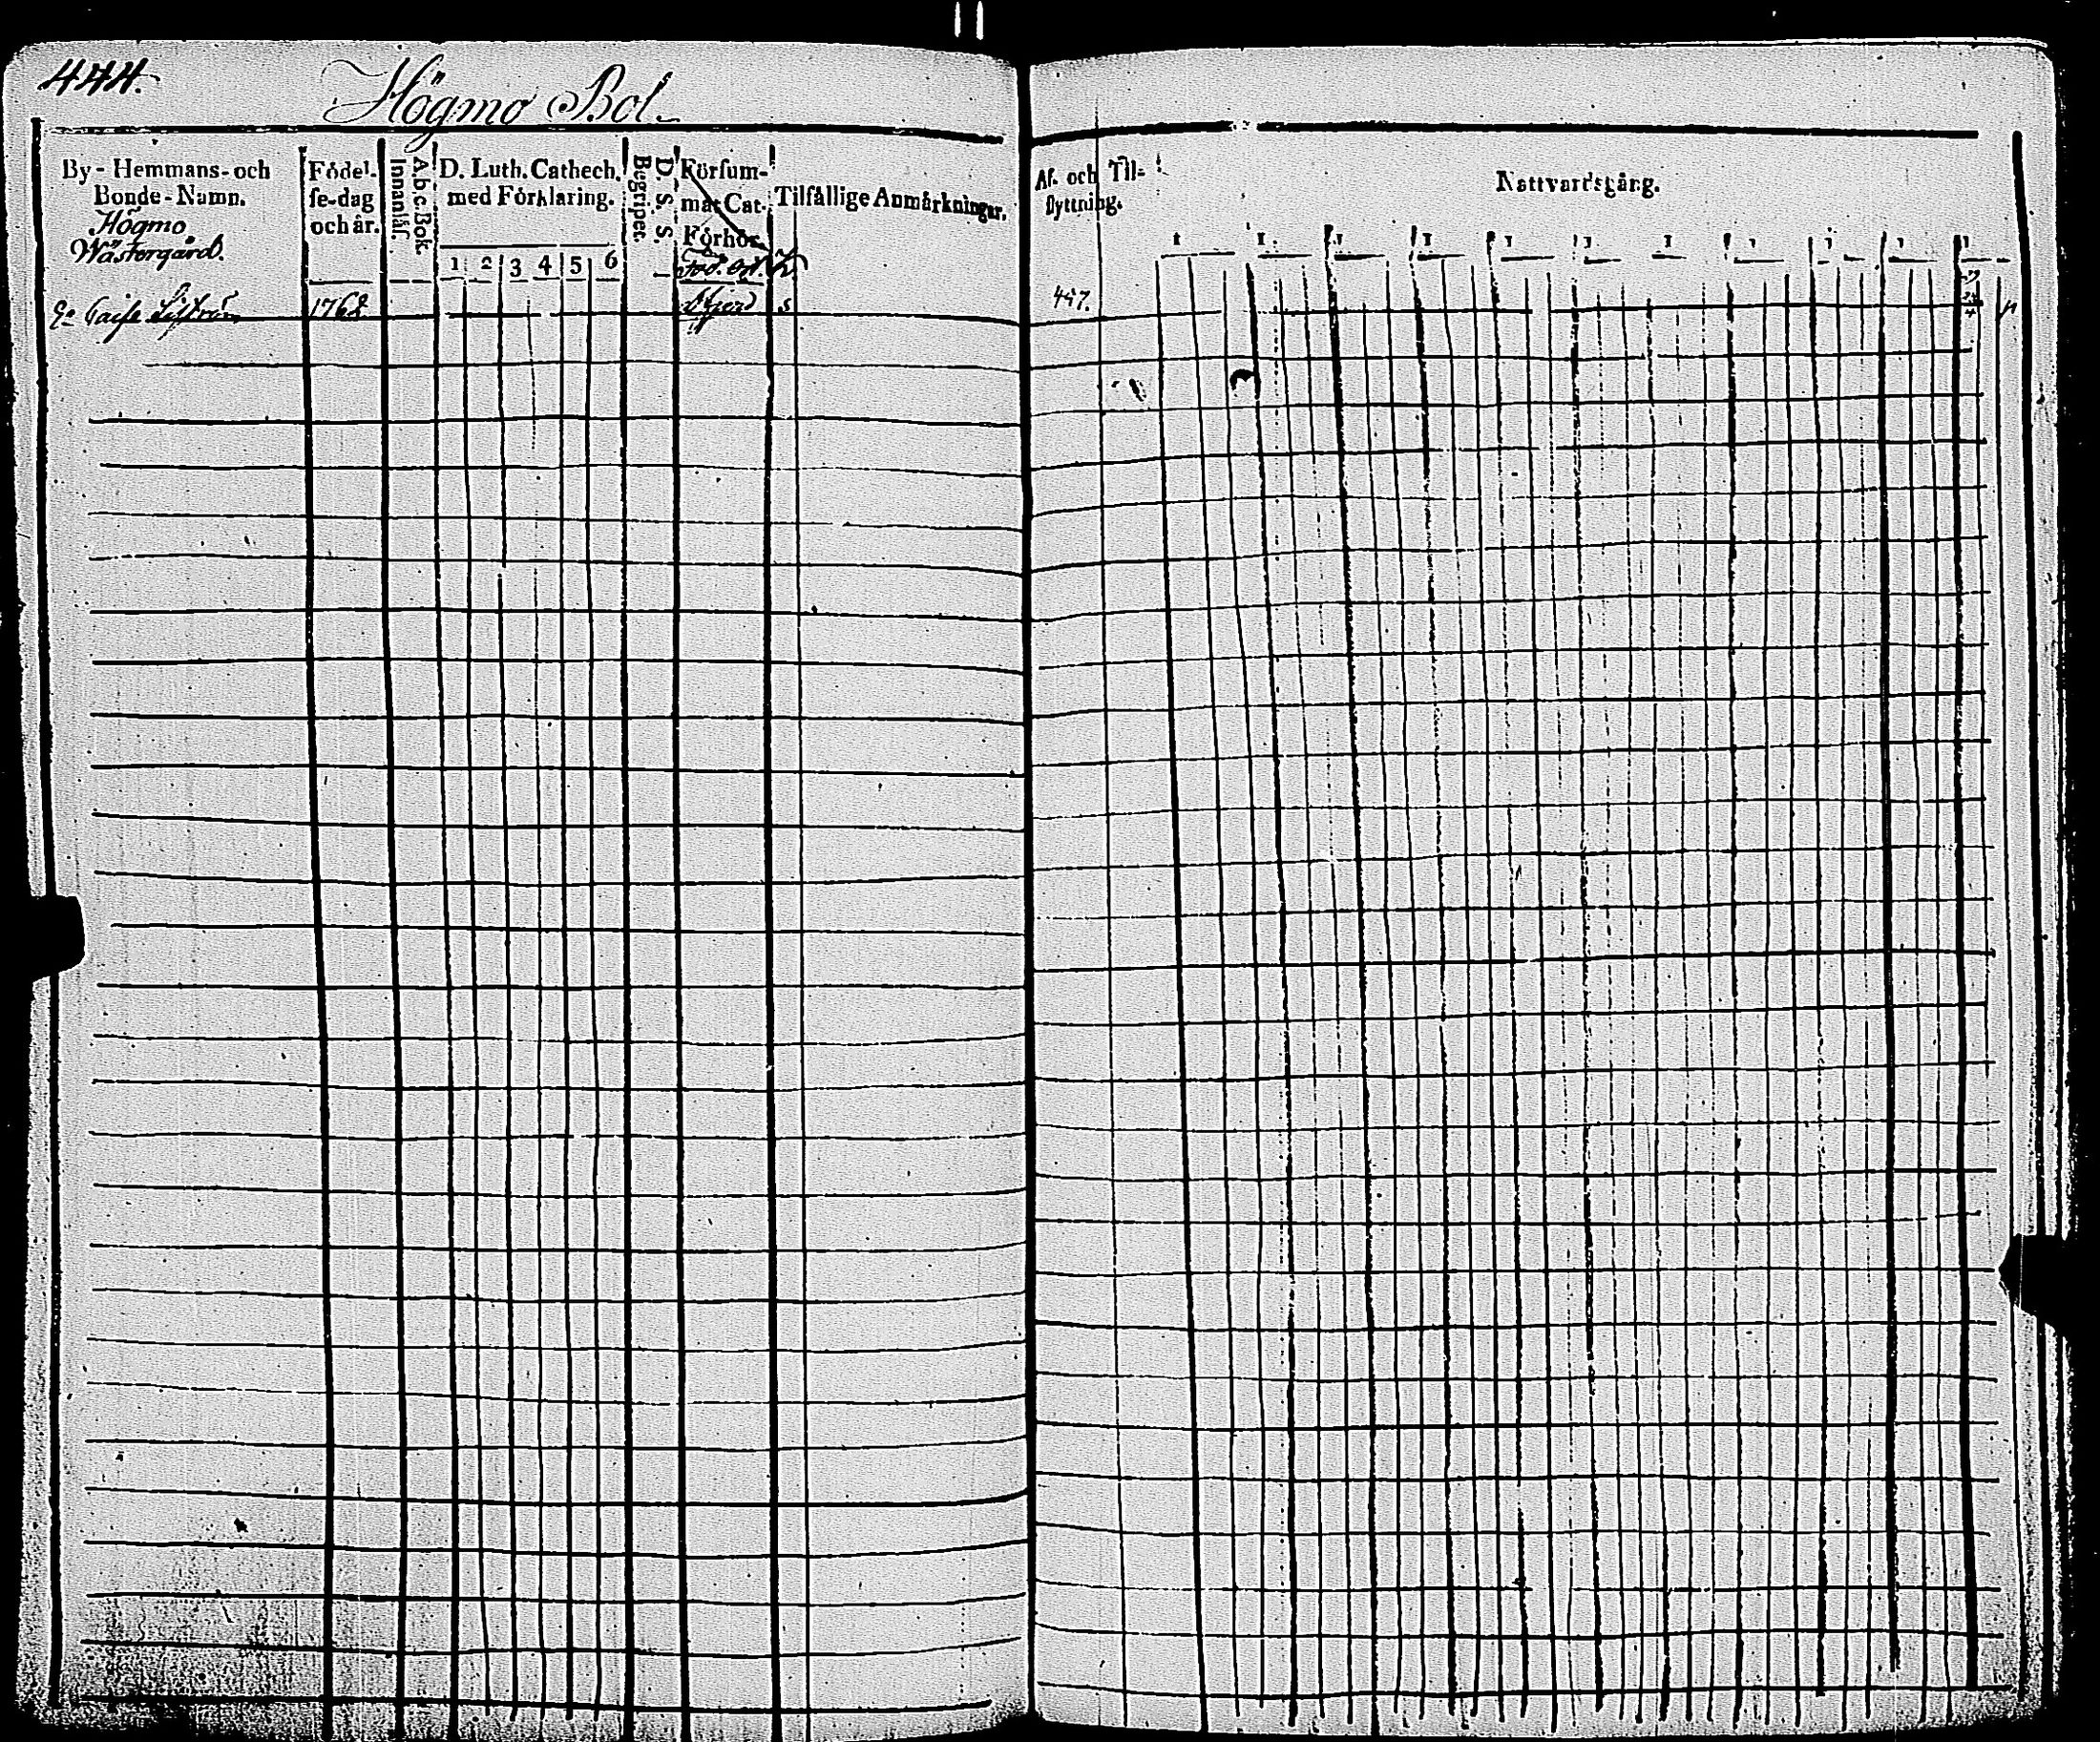 444.
Högmo Bol.
By-Hemmans-och
Bonde-Namn.
Högmo
Wästergård.
Födel-
se-dag
och år.
A.b.c.Bok.
Innanläs.
D. Luth. Cathech.
med Förklaring.
1 2 3 4 5 6
D. S. S.
Begripet.
Försum-
mat Cat-
Förhör.
Föd. Ort.
Tilfällige Anmärkningar.
Af- och Til-
flyttning.
Nattvardsgång.
Caisa 1768 s 447.